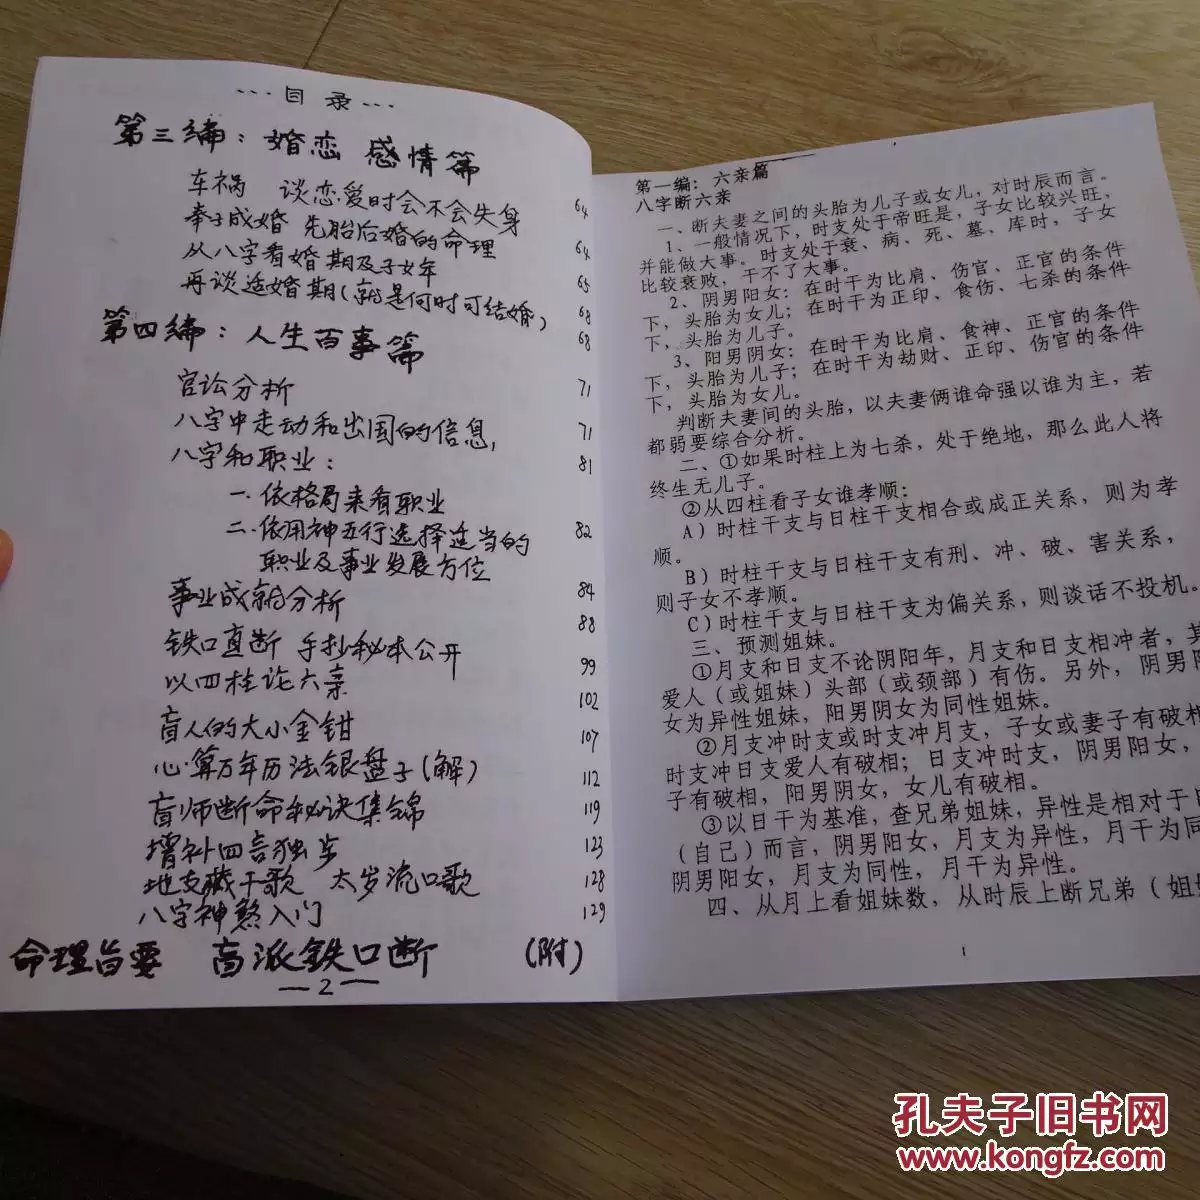 …目录…
第三编：婚恋 感情篇
车祸 谈恋爱时会不会失身 64
奉子成婚 先胎后婚的命理 64
从八字看婚期及子女年 65
再谈适婚期(就是何时可结婚) 68
第四编：人生百事篇 68
官讼分析 71
八字中走动和出国的信息, 71
八字和职业： 81
一.依格局来看职业
二.依用神五行选择适当的 82
职业及事业发展方位
事业成就分析 84
铁口直断 手抄秘本公开 88
以四柱论六亲 99
盲人的大小金钳 102
心算万年历法银盘子(解) 107
盲师断命秘诀集锦 112
增补四言独步 119
地支藏干歌 太岁流口歌 123
八字神煞入门 128
129
命理旨要 盲派铁口断 (附)
—2—
第一编：六亲篇
八字断六亲
一、断夫妻之间的头胎为儿子或女儿，对时辰而言。
1、一般情况下，时支处于帝旺是，子女比较兴旺，
并能做大事。时支处于衰、病、死、墓、库时，子女
比较衰败，干不了大事。
2、阴男阳女：在时干为比肩、伤官、正官的条件
下，头胎为女儿；在时干为正印、食伤、七杀的条件
下，头胎为儿子。
3、阳男阴女：在时干为比肩、食神、正官的条件
下，头胎为儿子；在时干为劫财、正印、伤官的条件
下，头胎为女儿。
判断夫妻间的头胎，以夫妻俩谁命强以谁为主，若
都弱要综合分析。
二、①如果时柱上为七杀，处于绝地，那么此人将
终生无儿子。
②从四柱看子女谁孝顺：
A）时柱干支与日柱干支相合或成正关系，则为孝
顺。
B）时柱干支与日柱干支有刑、冲、破、害关系，
则子女不孝顺。
C）时柱干支与日柱干支为偏关系，则谈话不投机。
三、预测姐妹。
①月支和日支不论阴阳年，月支和日支相冲者，其
爱人（或姐妹）头部（或颈部）有伤。另外，阴男阳
女为异性姐妹，阳男阴女为同性姐妹。
②月支冲时支或时支冲月支，子女或妻子有破相
时支冲日支爱人有破相；日支冲时支，阴男阳女，
子有破相，阳男阴女，女儿有破相。
③以日干为基准，查兄弟姐妹，异性是相对于日
（自己）而言，阴男阳女，月支为异性，月干为同
阴男阳女，月支为同性，月干为异性。
四、从月上看姐妹数，从时辰上断兄弟（姐妹
1
孔夫子旧书网
www.kongfz.com